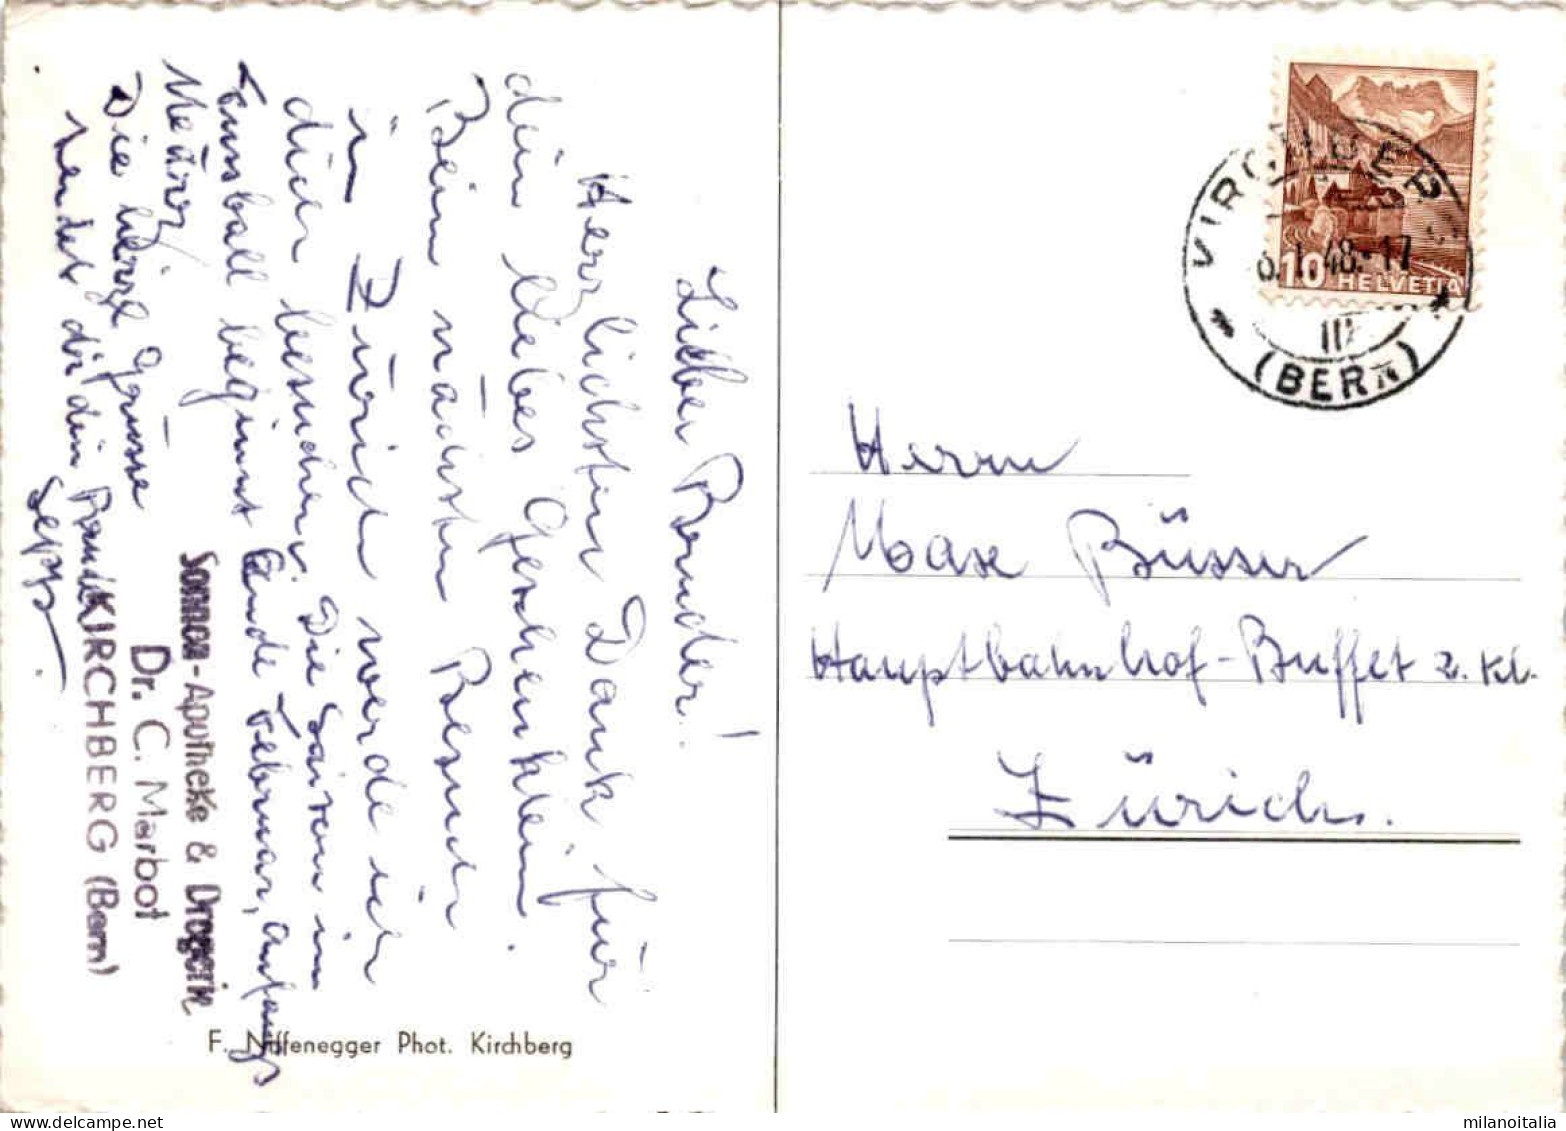 Lieber Bruder!
Herzlichsten Dank für
dein liebes Geschenklein.
Beim nächsten Besuch
in Zürich werde ich
dich besuchen. Die Saison im
beginnt Ende Februar, anfangs
März
Die herzl Grüsse
sendet dir dein
Sonnen-Apotheke & Drogerie
Dr. C. Marbot
KIRCHBERG (Bern)
F. Niffenegger Phot. Kirchberg
10 HELVETIA
48.-17
III
(BERN)
Herrn
Max Büsser
Hauptbahnhof-Buffet 2. Kl.
Zürich.
milanoitalia